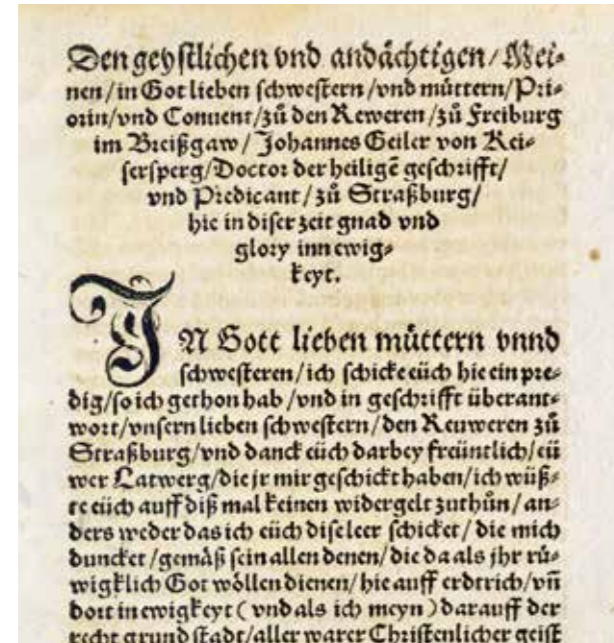 Den geystlichen vnd andächtigen / Mei⸗
nen / in Got lieben schwestern / vnd müttern / Pri⸗
orin / vnd Conuent / zů den Reweren / zů Freiburg
im Breißgaw / Johannes Geiler von Kei⸗
sersperg / Doctor der heiligẽ geschrifft /
vnd Predicant / zů Straßburg /
hie in diser zeit gnad vnd
glory inn ewig⸗
keyt.
IN Gott lieben müttern vnnd
schwesteren / ich schicke eüch hie ein pre⸗
dig / so ich gethon hab / vnd in geschrifft überant⸗
wort / vnsern lieben schwestern / den Reuweren zů
Straßburg / vnd danck eüch darbey freüntlich / eü
wer Latwerg / die jr mir geschickt haben / ich wüß⸗
te eüch auff diß mal keinen widergelt zuthůn / an⸗
ders weder das ich eüch dise leer schicket / die mich
duncket / gemäß sein allen denen / die da als jhr rů⸗
wigklich Got wöllen dienen / hie auff erdtrich / vñ
dort in ewigkeyt ( vnd als ich meyn ) darauff der
recht grund stadt / aller warer Christenlicher geist